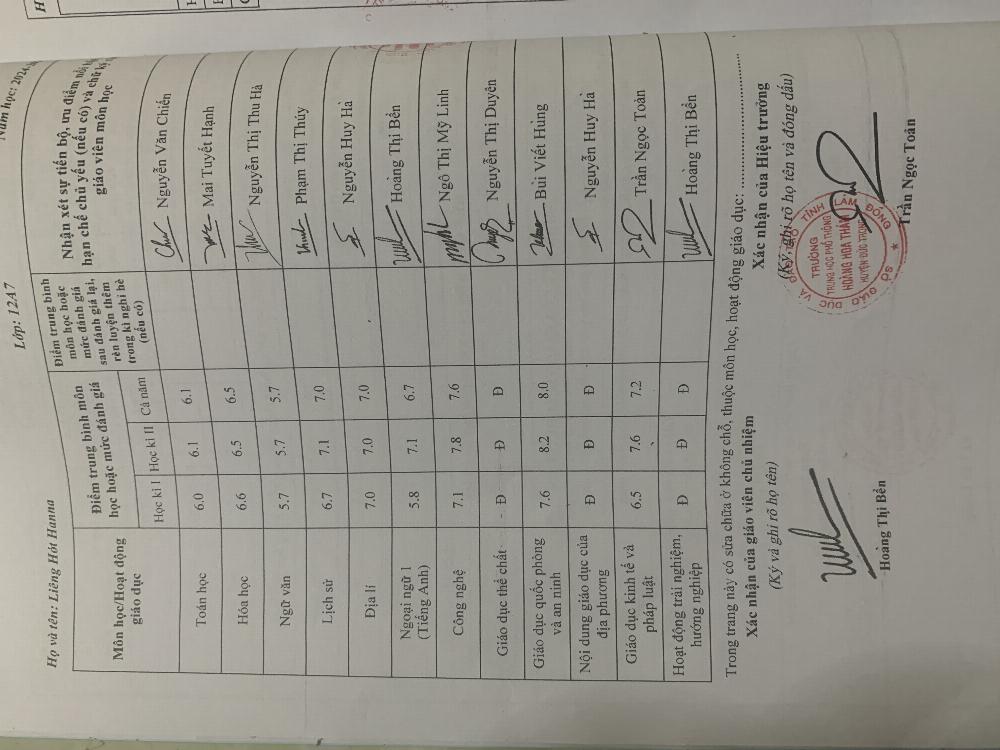 Năm học: 2024
Lớp: 12A7
Họ và tên: Liêng Hót Hanna
Môn học/Hoạt động giáo dục
Điểm trung bình môn học hoặc mức đánh giá
Học kì I
Học kì II
Cả năm
Điểm trung bình
môn học hoặc
mức đánh giá
sau đánh giá lại,
rèn luyện thêm
trong kì nghỉ hè
(nếu có)
Nhận xét sự tiến bộ, ưu điểm nổi
hạn chế chủ yếu (nếu có) và chữ kí
giáo viên môn học
Toán học 6.0 6.1 6.1 Nguyễn Văn Chiến
Hóa học 6.6 6.5 6.5 Mai Tuyết Hạnh
Ngữ văn 5.7 5.7 5.7 Nguyễn Thị Thu Hà
Lịch sử 6.7 7.1 7.0 Phạm Thị Thúy
Địa lí 7.0 7.0 7.0 Nguyễn Huy Hà
Ngoại ngữ 1
(Tiếng Anh) 5.8 7.1 6.7 Hoàng Thị Bền
Công nghệ 7.1 7.8 7.6 Ngô Thị Mỹ Linh
Giáo dục thể chất Đ Đ Đ Nguyễn Thị Duyên
Giáo dục quốc phòng
và an ninh 7.6 8.2 8.0 Bùi Viết Hùng
Nội dung giáo dục của
địa phương Đ Đ Đ Nguyễn Huy Hà
Giáo dục kinh tế và
pháp luật 6.5 7.6 7.2 Trần Ngọc Toàn
Hoạt động trải nghiệm,
hướng nghiệp Đ Đ Đ Hoàng Thị Bền
Trong trang này có sửa chữa ở không chỗ, thuộc môn học, hoạt động giáo dục:
Xác nhận của giáo viên chủ nhiệm
(Ký và ghi rõ họ tên)
Hoàng Thị Bền
Xác nhận của Hiệu trưởng
(Ký, ghi rõ họ tên và đóng dấu)
SỞ GIÁO DỤC VÀ ĐÀO TẠO TỈNH LÂM ĐỒNG
TRƯỜNG
TRUNG HỌC PHỔ THÔNG
HOÀNG HOA THÁM
HUYỆN ĐỨC TRỌNG
Trần Ngọc Toàn